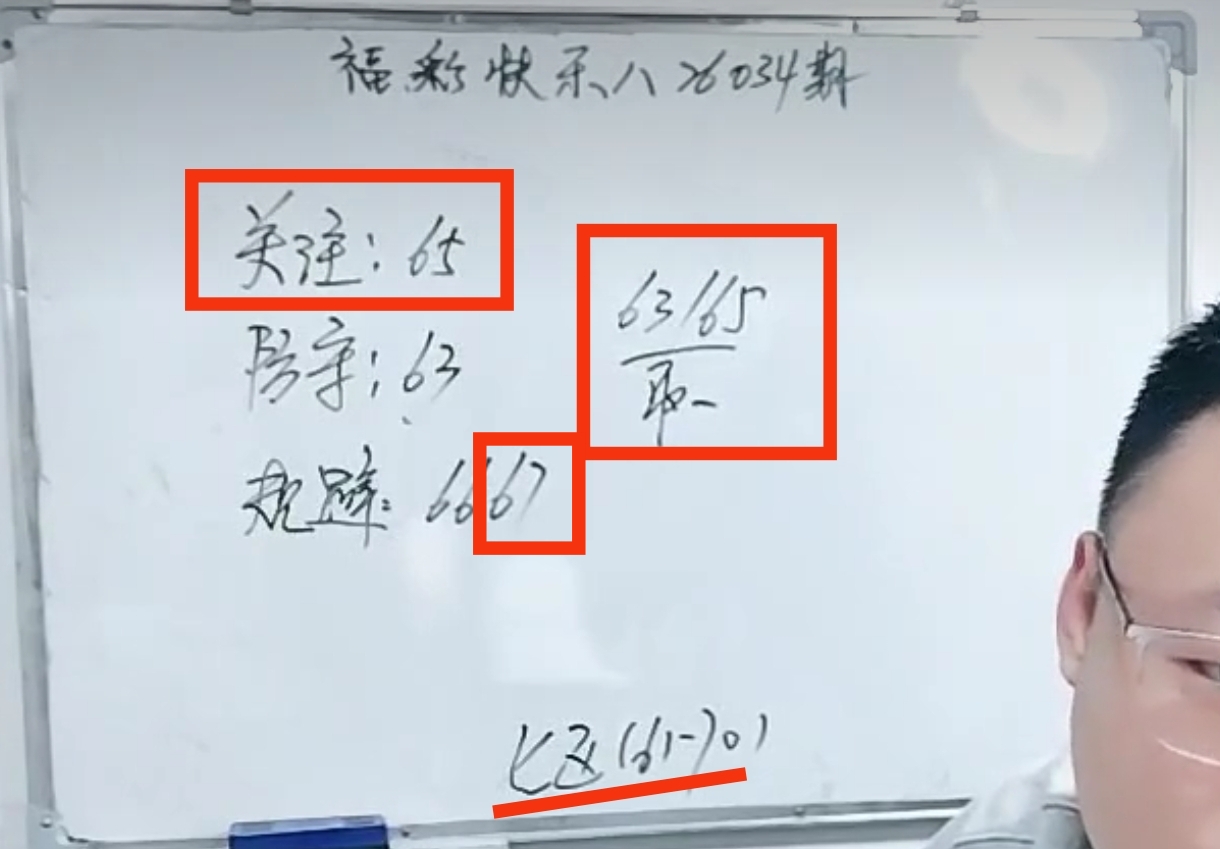 福彩快乐八26034期
关注：65
63/65
取一
防守：63
规避：6667
七区(61-70)